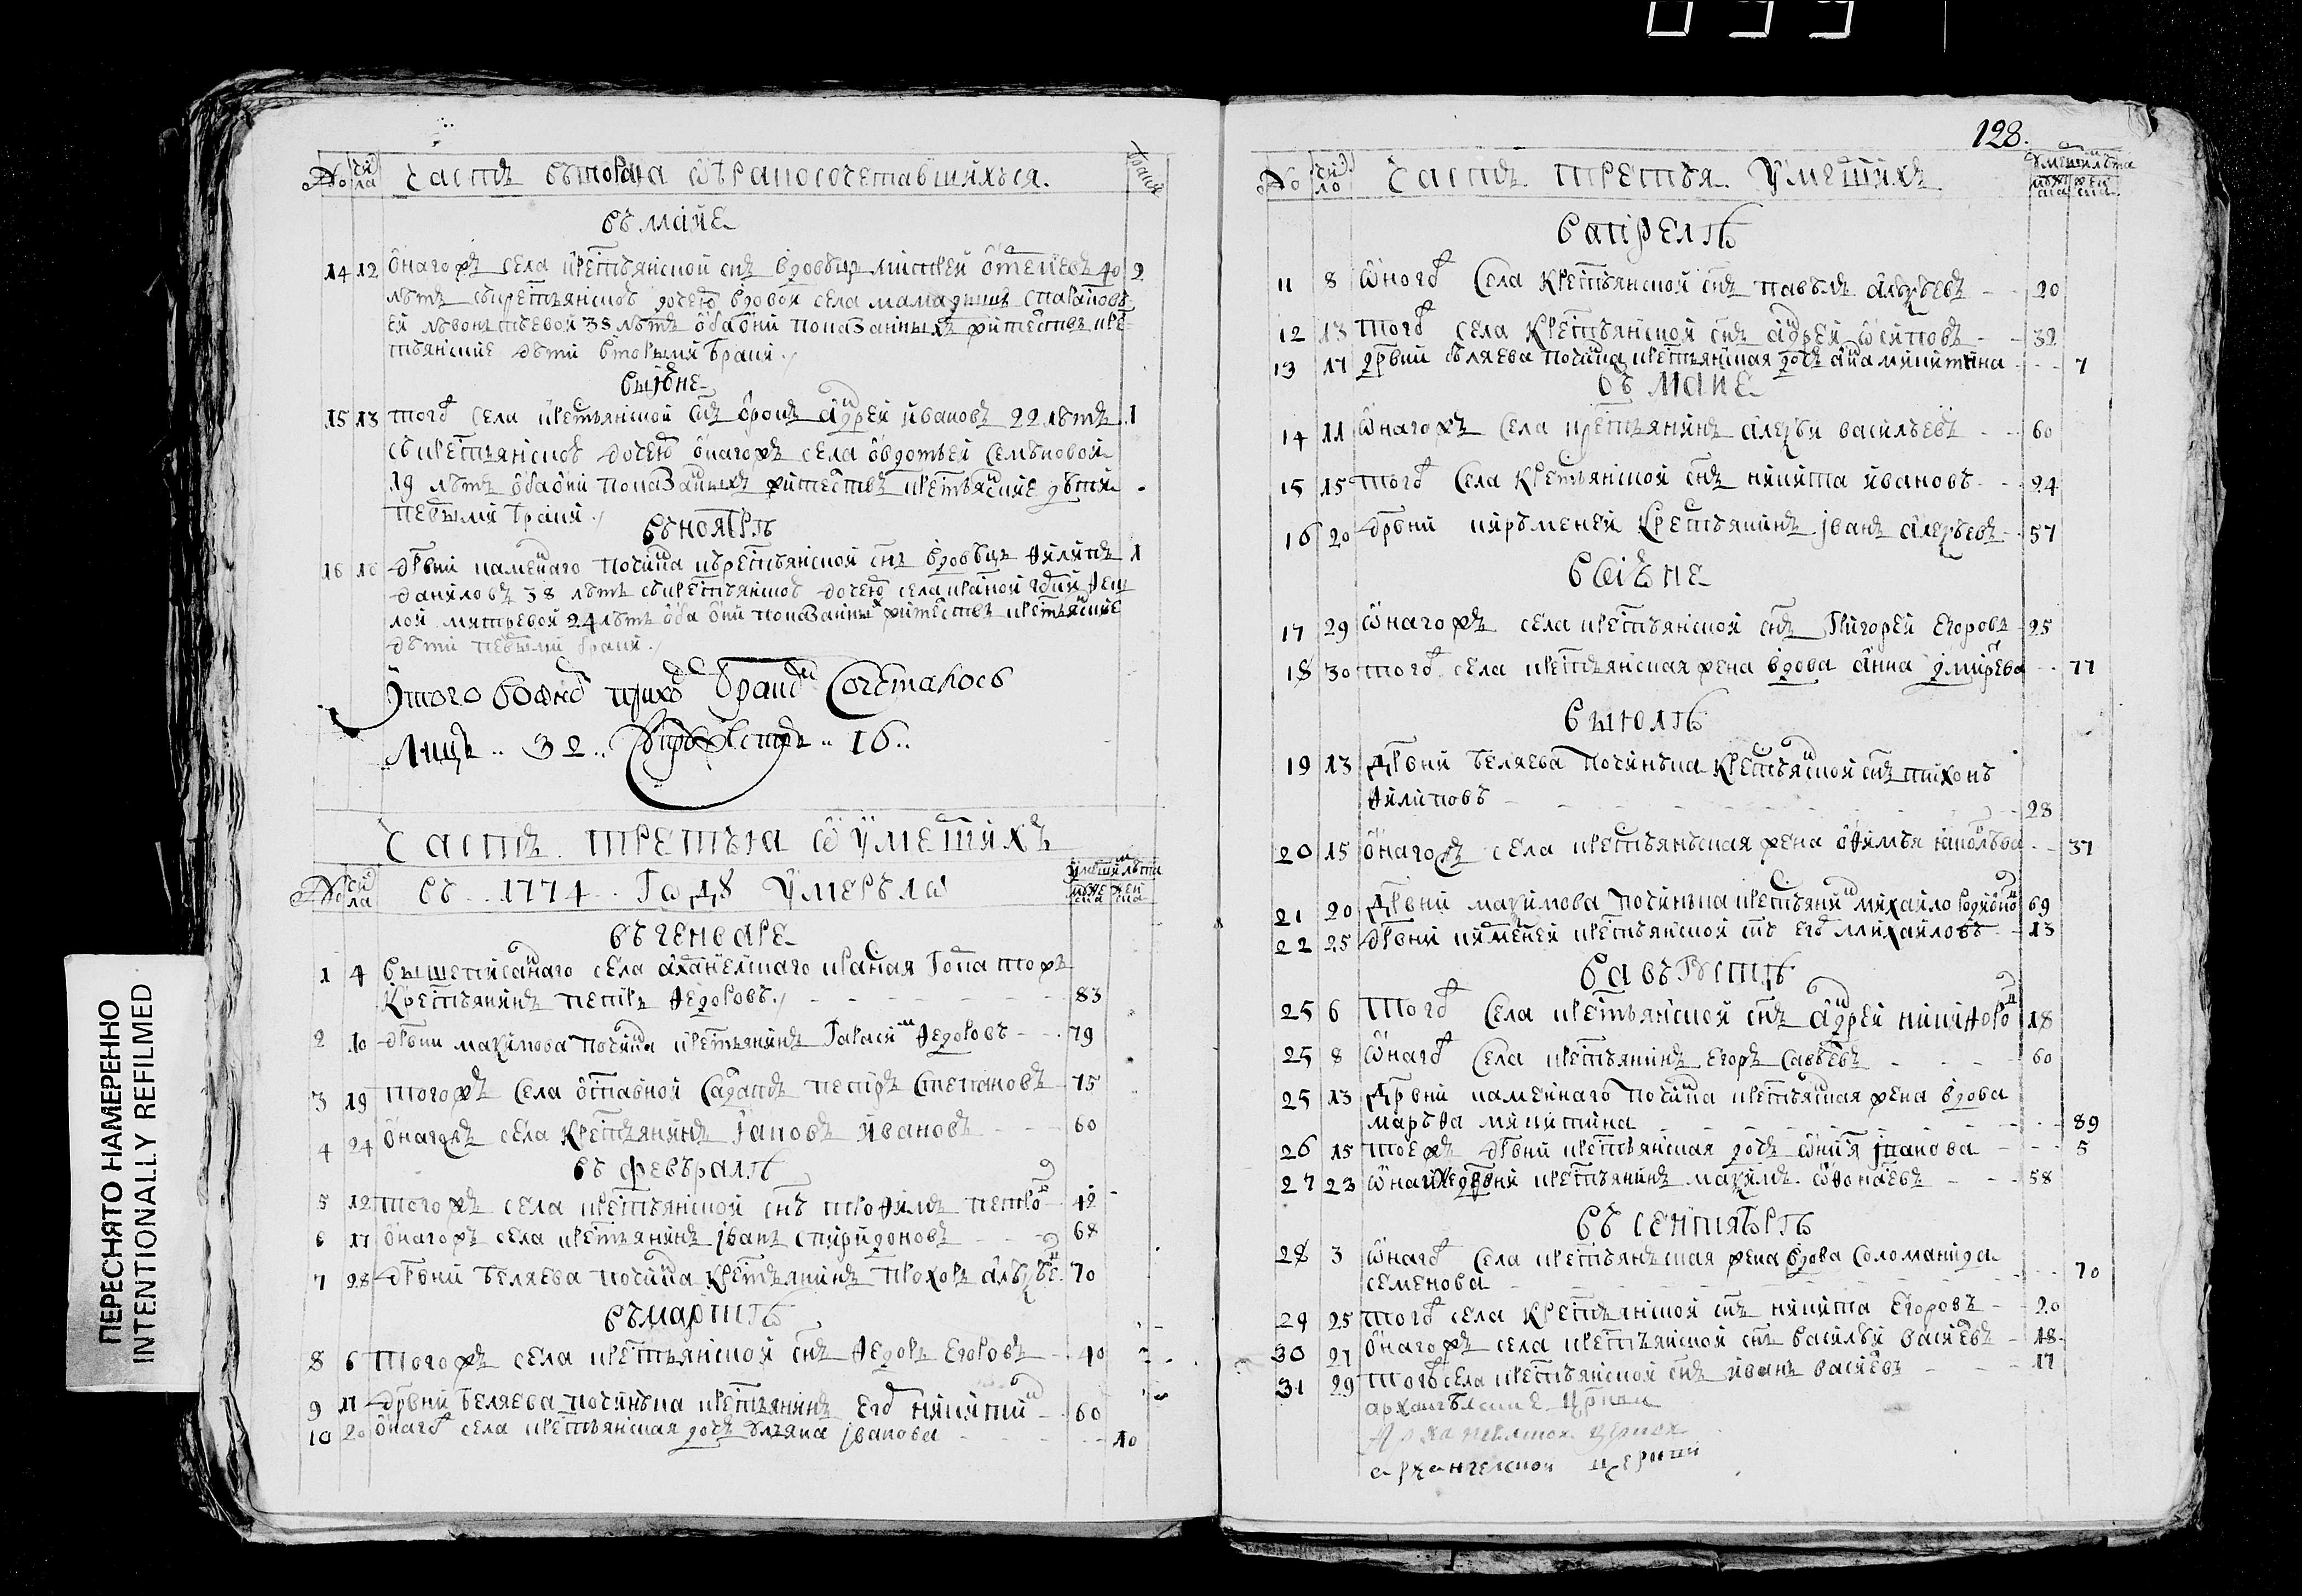 № чи
сла Часть вторая ѡ бракосочетавшихся. браки
въ маие
14 12 Онагожъ села крестьянской снъ вдовецъ 40 2
летъ съкрестьянскою дочерю вдовой села
ей 38 летъ оба они показанныхъ жителствъ кре-
стьянские дети вторыми браки.
выюне
15 13 тогож села крестьянской снъ отрокъ андрей ивановъ 22 летъ 1
съкрестьянскою дочерю онагожъ села овдотьей семъновой
19 летъ оба они показанныхъ жителствъ крестьянские дети
первыми браки.
въноябре
16 16 дрвни каменнаго починка кърестьянской снъ вдовецъ филипъ 1
даниловъ 38 летъ съкрестьянскою дочерю села
24 летъ оба они показанныхъ жителствъ крестьянские
дети первыми браки.
Итого воономъ приходе браком Сочеталось
Лицъ .. 32 .. 16 ..
Часть третья ѡ умершихъ
№ чи
сла въ .. 1774 . Году умерло умершим лета
муже
ска жен
ска
въ генваре
1 4 вышеписанаго села арханьгелскаго
Крестьянинъ петръ федоровъ. 83
2 10 дрвни максимова починка крестьянинъ Гарасимъ федоровъ 79
3 19 тогожъ села отставной салдатъ петръ степановъ 75
4 24 онагожъ села крестьянинъ Iаковъ ивановъ 60
въ февърале
5 12 тогожъ села крестьянской снъ трофимъ петров 42
6 17 онагожъ села крестьянинъ iванъ спиридоновъ 68
7 28 дрвни беляева починка крестьянинъ прохоръ 70
въмарте
8 6 тогожъ села крестьянской снъ федоръ егоровъ 40
9 11 дрвни беляева починька крестьянинъ егоръ никитин 60
10 20 онагож села крестьянская дочь ульяна iванова 10
128.
№ чи
сло Часть третья умершихъ умершим лета
муже
ска жен
ска
вапреле
11 8 ѡного села крестьянской снъ павелъ 20
12 13 тогож села крестьянской снъ андрей ѡсиповъ 32
13 17 дрвни беляева починка крестьянская дочь анна никитина 7
въ маие
14 11 ѡнагожъ села крестьянинъ алексъй васильевъ 60
15 15 тогож села крестьянской снъ никита ивановъ 24
16 20 дрвни кирьменей крестьянинъ iванъ алексъевъ 57
въ iюне
17 29 ѡнагожъ села крестьянской снъ Григорей Егоровъ 25
18 30 тогож села крестьянская жена вдова анна дмитрева 77
выюле
19 13 дрвни беляева починька крестьянской снъ тихонъ
филиповъ 28
20 15 онагожъ села крестьяньская жена офимья 37
21 20 дрвни максимова починька крестьянин михайло родионов 69
22 25 дрвни кирменей крестьянской снъ егоръ михайловъ 13
въ авъгусте
25 6 тогож села крестьянской снъ андрей никифоров 18
25 8 ѡнагож села крестьянинъ егоръ савъевъ 60
25 13 дрвни каменнаго починка крестьянская жена вдова
маръфа никитина 89
26 15 тоежъ дрвни крестьянская дочь iванова 5
27 23 ѡнаиже дрвни крестьянинъ максимъ ѡфонасевъ 58
въ сентябре
28 3 ѡнагож села крестьянъская жена вдова Соломанида
семенова 70
29 25 тогож села крестьянской снъ никита егоровъ 20
30 27 онагожъ села крестьянской снъ василей василевъ 18
31 29 тогож села крестьянской снъ иванъ василевъ 17
архангелские церкви
Архангелской церкви
архангелской церкви
ПЕРЕСНЯТО НАМЕРЕННО
INTENTIONALLY REFILMED